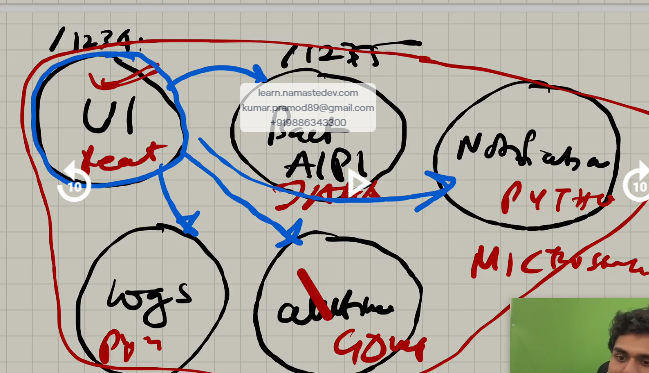 /1234
/1235
UI
React
learn.namastedev.com
kumar.pramod89@gmail.com
+919886343300
Back
API
JAVA
Notification
PYTHO
10
10
logs
GOlang